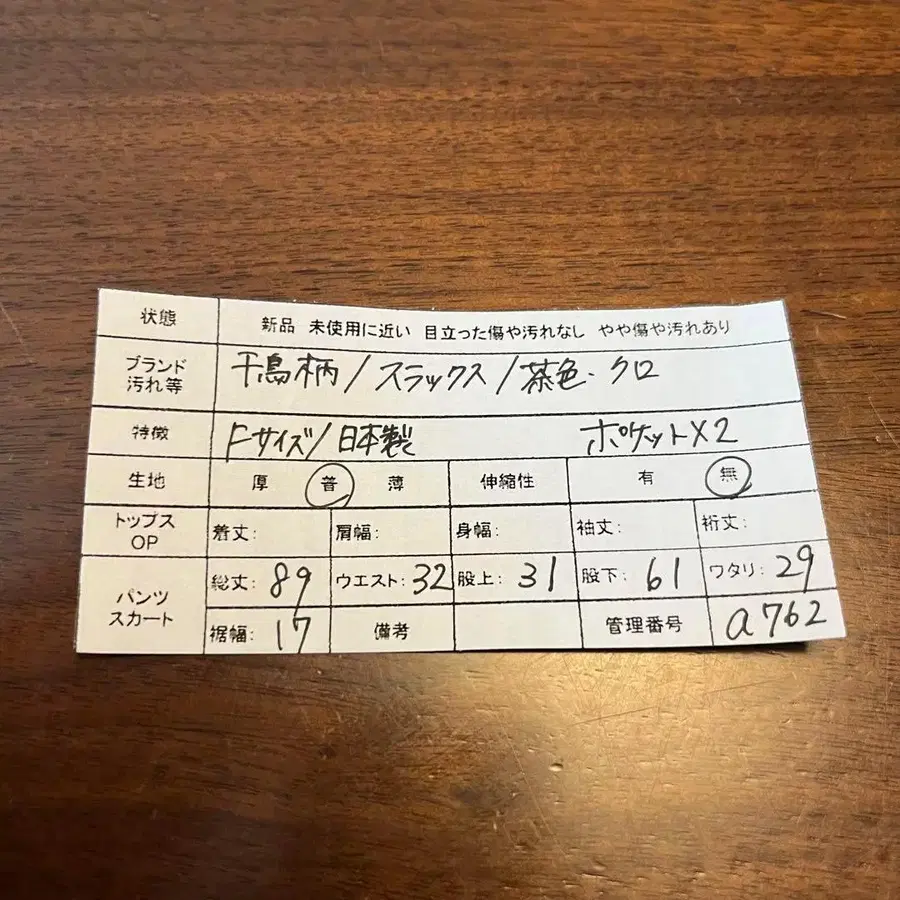 状態 新品 未使用に近い 目立った傷や汚れなし やや傷や汚れあり
ブランド 千鳥柄/スラックス/茶色・クロ
汚れ等
特徴 Fサイズ/日本製 ポケット×2
生地 厚 普 薄 伸縮性 有 無
トップス 着丈: 肩幅: 身幅: 袖丈: 裄丈:
OP
パンツ 総丈: 89 ウエスト: 32 股上: 31 股下: 61 ワタリ: 29
スカート 裾幅: 17 備考 管理番号 a762